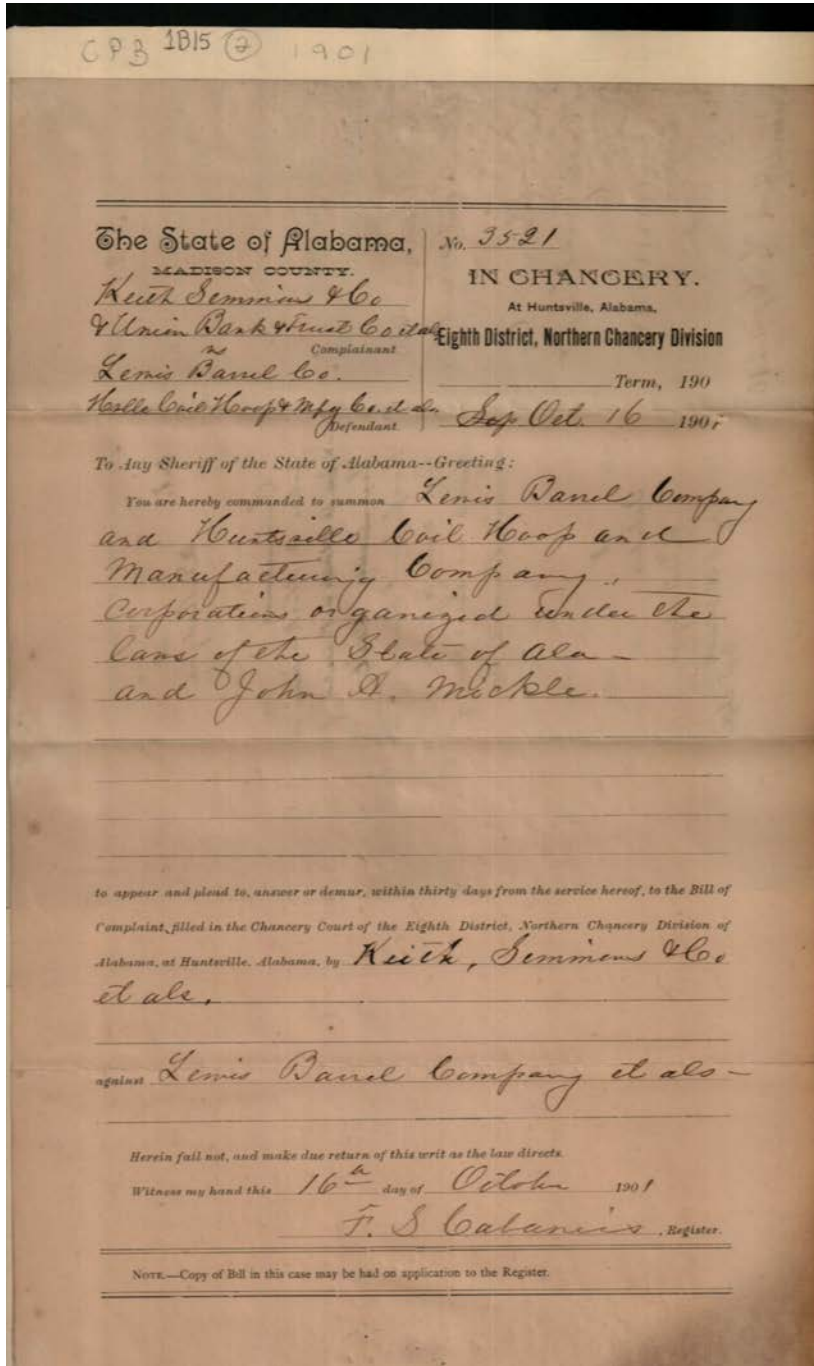 CPB 1B15 2 1901
The State of Alabama,
MADISON COUNTY.
Keith Simmons & Co
& Union Bank & Trust Co et als
Complainant
vs
Lewis Barrel Co.
Coil Hoop & Mfg Co. et als
Defendant
No. 3521
IN CHANCERY.
At Huntsville, Alabama,
Eighth District, Northern Chancery Division
Term, 190
Oct. 16 1901
To Any Sheriff of the State of Alabama--Greeting:
You are hereby commanded to summon Lewis Barrel Company
and Huntsville Coil Hoop and
Manufacturing Company,
Corporations organized under the
laws of the State of Ala -
and John A. Mickle.
to appear and plead to, answer or demur, within thirty days from the service hereof, to the Bill of
Complaint, filled in the Chancery Court of the Eighth District, Northern Chancery Division of
Alabama, at Huntsville, Alabama, by Keith, Simmons & Co
et als.
against Lewis Barrel Company et als -
Herein fail not, and make due return of this writ as the law directs.
Witness my hand this 16th day of October 1901
F. S Cabaniss, Register.
NOTE.—Copy of Bill in this case may be had on application to the Register.